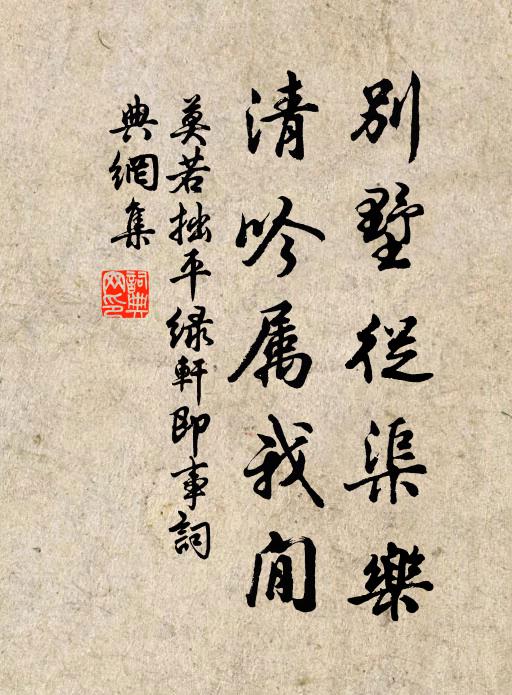 別墅從渠樂
清吟属我閒
莫若拙平綠軒即事詞
典網集
詞典网印